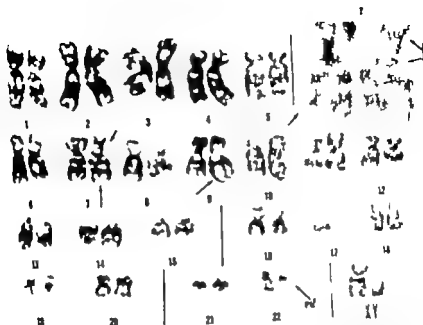 ?
1 2 3 4 5
6 7 8 9 10 12
13 14 15 16 17 18
19 20 21 22 XY